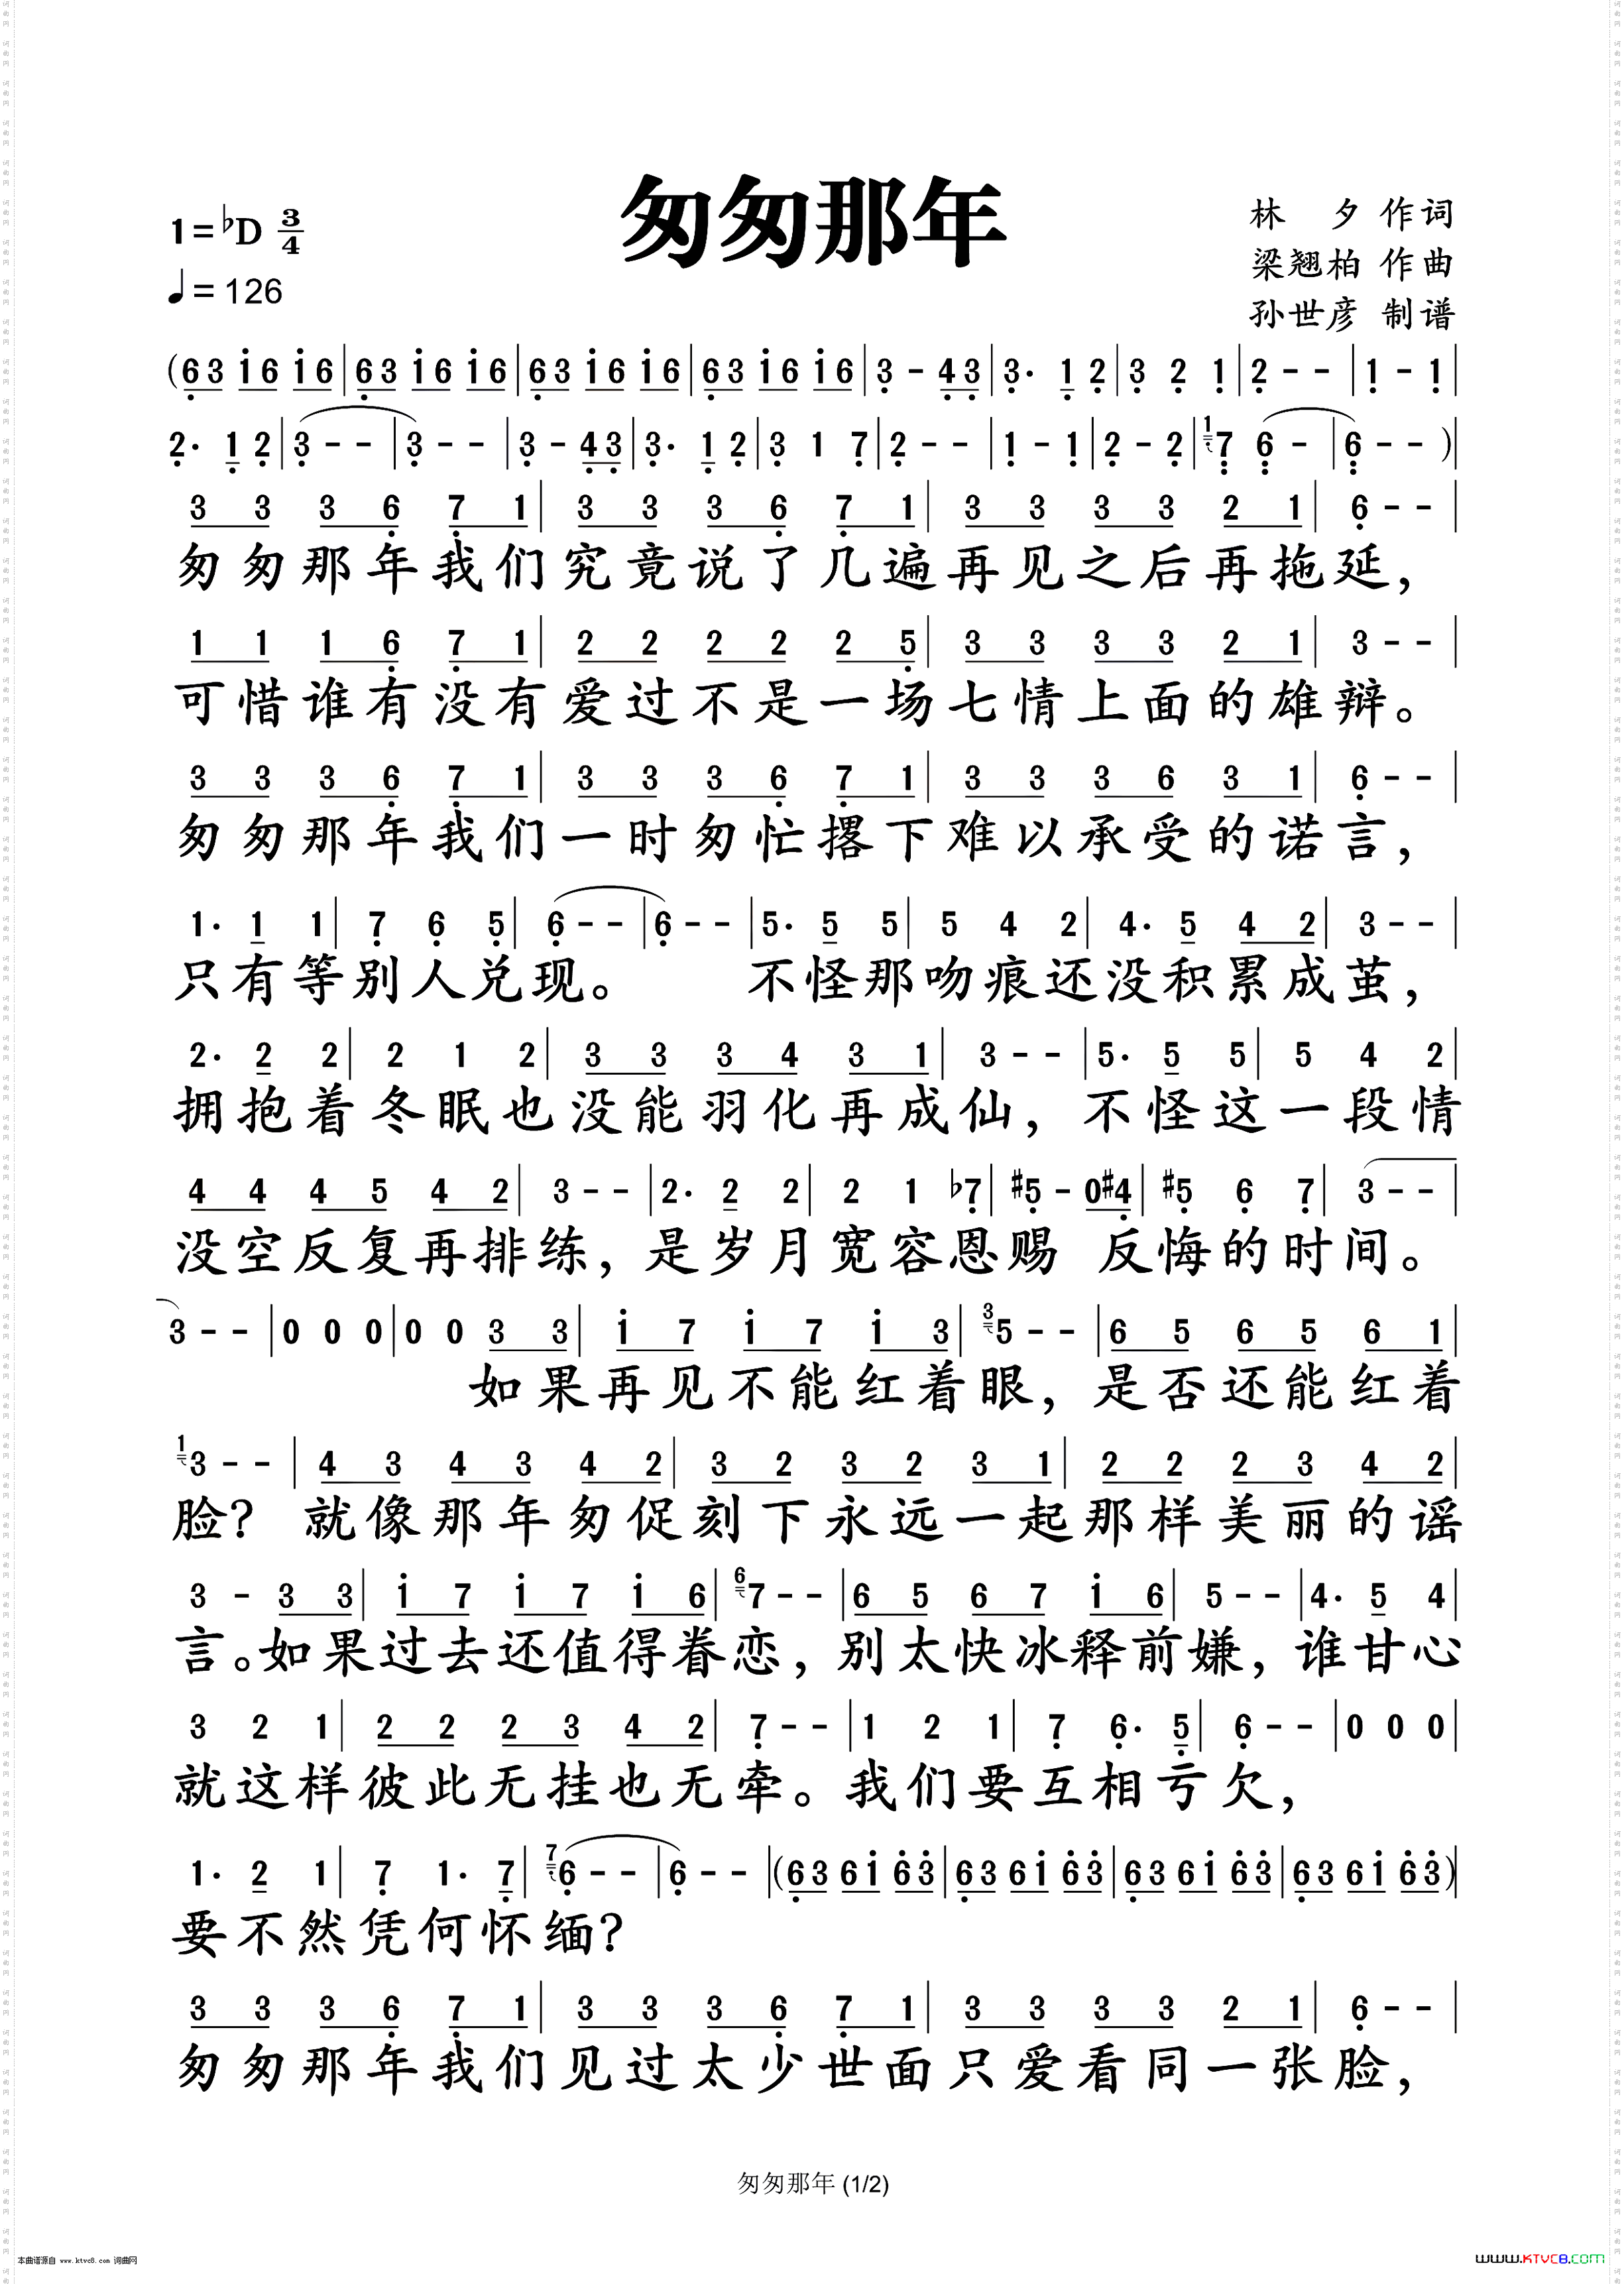 匆匆那年
1=♭D 3/4
♩= 126
林 夕 作词
梁翘柏 作曲
孙世彦 制谱
(6̣3 i6 i6|6̣3 i6 i6|6̣3 i6 i6|6̣3 i6 i6|3̣ - 4̣3̣|3̣. 1̣ 2̣|3̣ 2̣ 1̣|2̣ - -|1̣ - 1̣|
2̣. 1̣ 2̣|3̣ - -|3̣ - -|3̣ - 4̣3̣|3̣. 1̣ 2̣|3̣ 1 7̣|2̣ - -|1̣ - 1̣|2̣ - 2̣|1 7̣ 6̣ -|6̣ - -)|
3 3 3 6̣ 7̣ 1|3 3 3 6̣ 7̣ 1|3 3 3 3 2 1|6̣ - -|
匆匆那年我们究竟说了几遍再见之后再拖延，
1 1 1 6̣ 7̣ 1|2 2 2 2 2 5̣|3 3 3 3 2 1|3 - -|
可惜谁有没有爱过不是一场七情上面的雄辩。
3 3 3 6̣ 7̣ 1|3 3 3 6̣ 7̣ 1|3 3 3 6 3 1|6̣ - -|
匆匆那年我们一时匆忙撂下难以承受的诺言，
1. 1 1|7̣ 6̣ 5̣|6̣ - -|6̣ - -|5. 5 5|5 4 2|4. 5 4 2|3 - -|
只有等别人兑现。 不怪那吻痕还没积累成茧，
2. 2 2|2 1 2|3 3 3 4 3 1|3 - -|5. 5 5|5 4 2|
拥抱着冬眠也没能羽化再成仙，不怪这一段情
4 4 4 5 4 2|3 - -|2. 2 2|2 1 ♭7̣|#5̣ - 0#4̣|#5̣ 6̣ 7̣|3 - -|
没空反复再排练，是岁月宽容恩赐 反悔的时间。
3 - -|0 0 0|0 0 3 3|i 7 i 7 i 3|3 5 - -|6 5 6 5 6 1|
如果再见不能红着眼，是否还能红着
1 3 - -|4 3 4 3 4 2|3 2 3 2 3 1|2 2 2 3 4 2|
脸？ 就像那年匆促刻下永远一起那样美丽的谣
3 - 3 3|i 7 i 7 i 6|6 7 - -|6 5 6 7 i 6|5 - -|4. 5 4|
言。如果过去还值得眷恋，别太快冰释前嫌，谁甘心
3 2 1|2 2 2 3 4 2|7̣ - -|1 2 1|7̣ 6̣. 5̣|6̣ - -|0 0 0|
就这样彼此无挂也无牵。我们要互相亏欠，
1. 2 1|7̣ 1. 7̣|7 6̣ - -|6̣ - -|(6̣3 6i 6̇3̇|6̣3 6i 6̇3̇|6̣3 6i 6̇3̇|6̣3 6i 6̇3̇)|
要不然凭何怀缅？
3 3 3 6̣ 7̣ 1|3 3 3 6̣ 7̣ 1|3 3 3 3 2 1|6̣ - -|
匆匆那年我们见过太少世面只爱看同一张脸，
匆匆那年 (1/2)
本曲谱源自 www.ktvc8.com 词曲网
WWW.KTVC8.COM